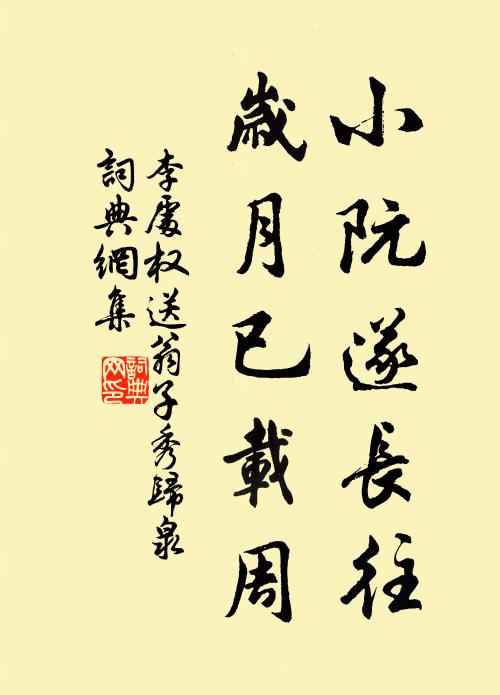 小阮遂長往
歲月已載周
李處权送翁子秀歸泉
詞典網集
詞典网印